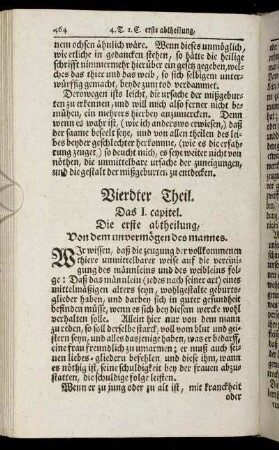 464 4. T. 1. C. erste abtheilung,
nem ochsen ähnulic wäre. Wenn dieses unmöglich,
wie etliche in gedancken stehen, so hätte die heilige
schrifft nimmermehr hierüber ein gesetz gegeben, wel-
ches das thier und das weib, so sich selbigem unter-
würffig gemacht, beyde zum tod verdammet.
Derowegen ists leicht, die ursache der mißgebur-
ten zu erkennen, und will mich also ferner nicht be-
mühen, ein mehrers hierbey anzumercken. Denn
wenn es wahr ist, (wie ich anderswo erwiesen,) daß
der saame beseelt seye, und von allen theilen des lei-
bes beyder geschlechter herkomme, (wie es die erfah-
rung zeuget) so deucht mich, es seye weiter nicht von
nöthen, die unmittelbare ursache der zuneigungen,
und die gestalt der mißgeburten zu entdecken.
Vierdter Theil.
Das I. capitel.
Die erste abtheilung,
Von dem unvermögen des mannes.
Wir wissen, daß die zeugung der vollkommenen
thiere unmittelbarer weise auf die vereini-
gung des männleins und des weibleins fol-
ge: Daß das männlein (jedes nach seiner art) eines
mittelmäßigen alters seyn, wohlgestalte geburts-
glieder haben, und darbey sich in guter gesundheit
befinden müsse, wenn es sich bey diesem wercke wohl
verhalten solle. Allein hier nur von dem mann
zu reden, so soll derselbe starck, voll vom blut und gei-
stern seyn, und alles das jenige haben, was er bedarff,
eine frau freundlich zu umarmen; er muß auch sei-
nen liebes-gliedern befehlen, und diese ihm, wann
es nöthig ist, seine schuldigkeit bey der frauen abzu-
statten, die schuldige folge leisten.
Wenn er zu jung oder zu alt ist, mit kranckheit
oder